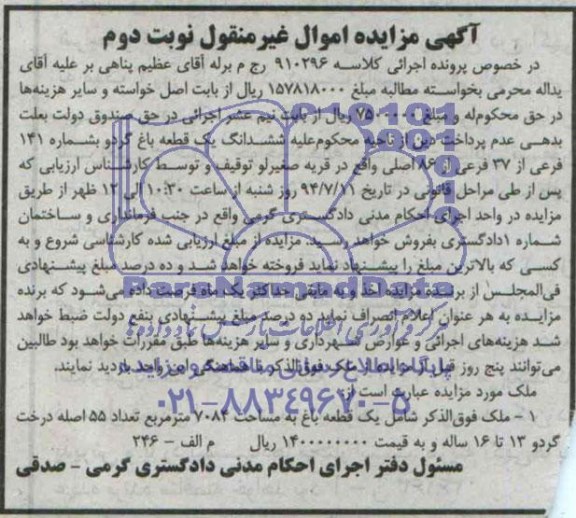 آگهی مزایده اموال غیرمنقول نوبت دوم
در خصوص پرونده اجرائی کلاسه ۹۱۰۲۹۶ رج م برله آقای عظیم پناهی بر علیه آقای
یداله محرمی بخواسته مطالبه مبلغ ۱۵۷۸۱۸۰۰۰ ریال از بابت اصل خواسته و سایر هزینه‌ها
در حق محکوم‌له و مبلغ ۷۵۰۰۰۰۰ ریال از بابت نیم عشر اجرائی در حق صندوق دولت بعلت
بدهی عدم پرداخت دین از ناحیه محکوم‌علیه ششدانگ یک قطعه باغ گردو بشماره ۱۴۱
فرعی از ۳۷ فرعی از ۸۶ اصلی واقع در قریه صفیرلو توقیف و توسط کارشناس ارزیابی که
پس از طی مراحل قانونی در تاریخ ۹۴/۷/۱۱ روز شنبه از ساعت ۱۰:۳۰ الی ۱۲ ظهر از طریق
مزایده در واحد اجرای احکام مدنی دادگستری گرمی واقع در جنب فرمانداری و ساختمان
شماره ۱دادگستری بفروش خواهد رسید. مزایده از مبلغ ارزیابی شده کارشناسی شروع و به
کسی که بالاترین مبلغ را پیشنهاد نماید فروخته خواهد شد و ده درصد مبلغ پیشنهادی
فی‌المجلس از برنده مزایده اخذ و به مابقی حداکثر یک ماه فرصت داده می‌شود که برنده
مزایده به هر عنوان اعلام انصراف نماید ده درصد مبلغ پیشنهادی بنفع دولت ضبط خواهد
شد هزینه‌های اجرائی و عوارض شهرداری و سایر هزینه‌ها طبق مقررات خواهد بود طالبین
می‌توانند پنج روز قبل از مزایده از ملک فوق‌الذکر با هماهنگی این واحد بازدید نمایند.
ملک مورد مزایده عبارت است از:
۱ - ملک فوق‌الذکر شامل یک قطعه باغ به مساحت ۷۰۸۴ مترمربع تعداد ۵۵ اصله درخت
گردو ۱۳ تا ۱۶ ساله و به قیمت ۱۴۰۰۰۰۰۰۰۰ ریال م الف - ۲۴۶
مسئول دفتر اجرای احکام مدنی دادگستری گرمی - صدقی
ParsNamadData
مرکز فرآوری اطلاعات پارس نماد داده‌ها
پایگاه اطلاع رسانی مناقصه و مزایده
۰۲۱-۸۸۳۴۹۶۷۰-۵